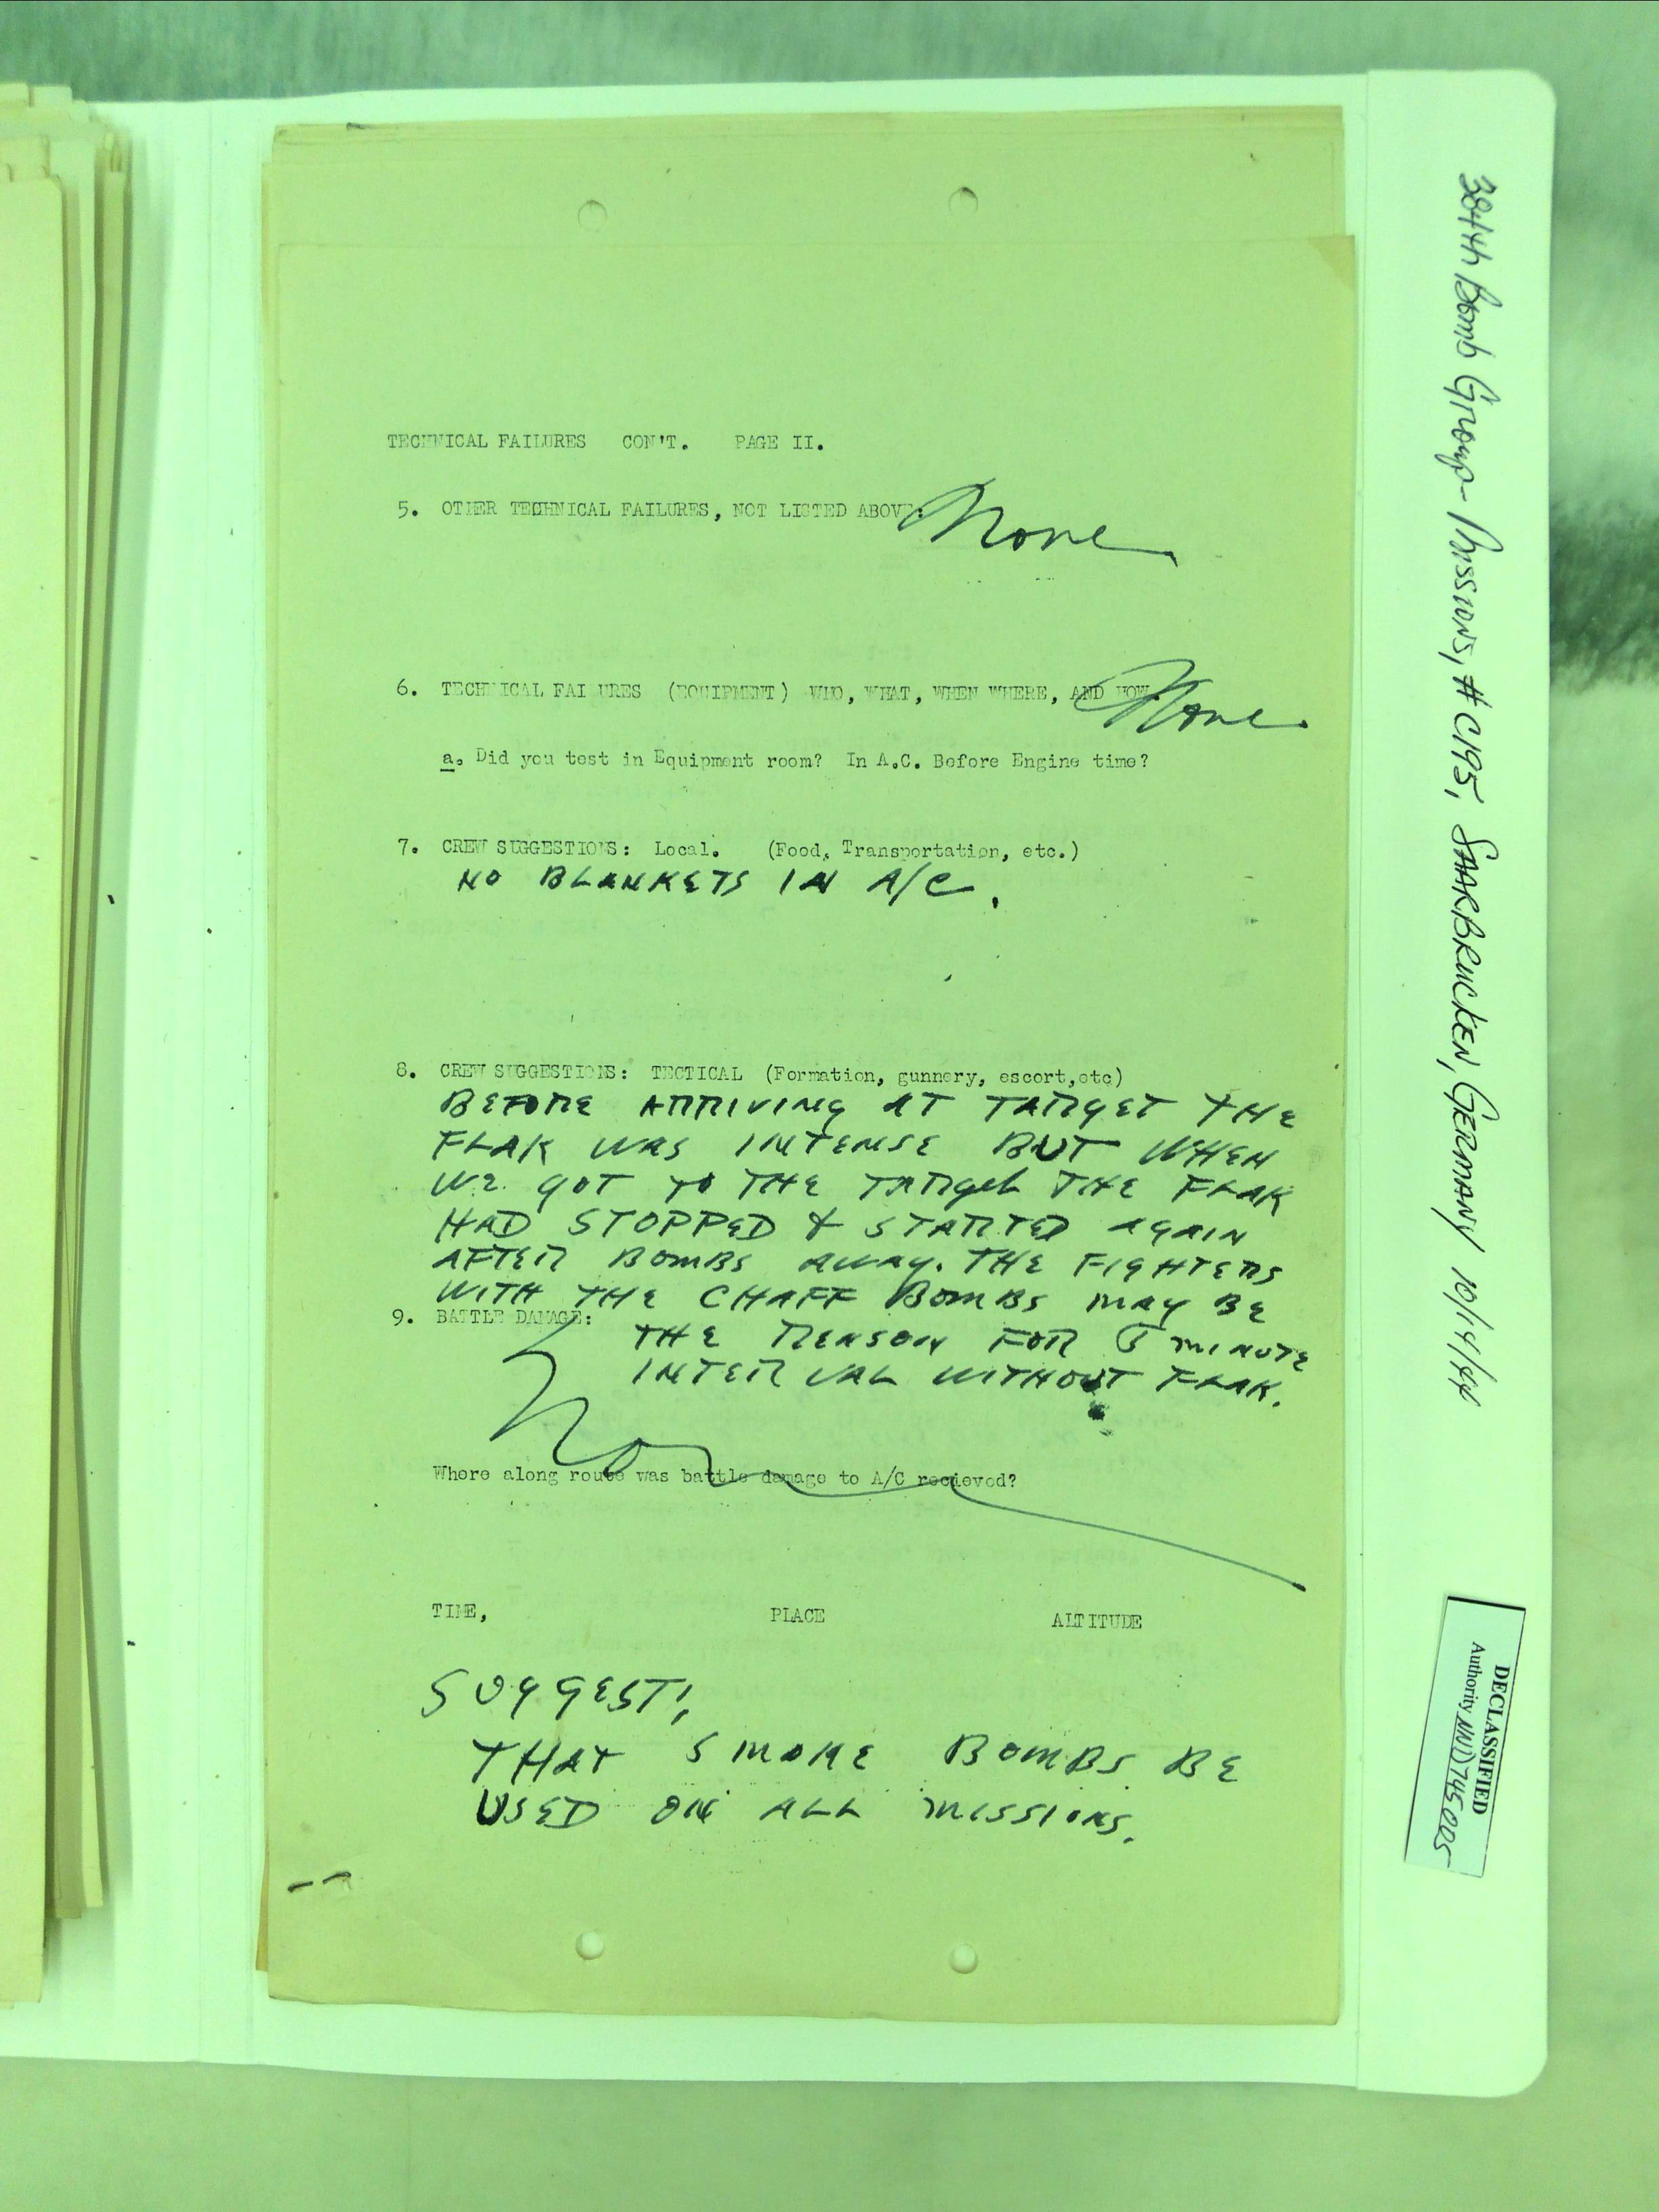 TECHNICAL FAILURES CON'T. PAGE II.
5. OTHER TECHNICAL FAILURES, NOT LISTED ABOVE: None
6. TECHNICAL FAILURES (EQUIPMENT) WHO, WHAT, WHEN WHERE, AND HOW. None.
a. Did you test in Equipment room? In A.C. Before Engine time?
7. CREW SUGGESTIONS: Local. (Food, Transportation, etc.)
NO BLANKETS IN A/C.
8. CREW SUGGESTIONS: TECTICAL (Formation, gunnery, escort,etc)
BEFORE ARRIVING AT TARGET THE
FLAK WAS INTENSE BUT WHEN
WE GOT TO THE TARGET THE FLAK
HAD STOPPED & STARTED AGAIN
AFTER BOMBS AWAY. THE FIGHTERS
WITH THE CHAFF BOMBS MAY BE
THE REASON FOR MINUTE
INTERVAL WITHOUT FLAK.
9. BATTLE DAMAGE:
No
Where along route was battle damage to A/C recieved?
TIME, PLACE ALTITUDE
SUGGEST,
THAT SMOKE BOMBS BE
USED ON ALL MISSIONS.
384th Bomb Group - Missions, #C195, SAARBRUCKEN, GERMANY 10/14/44
DECLASSIFIED
Authority NND745005